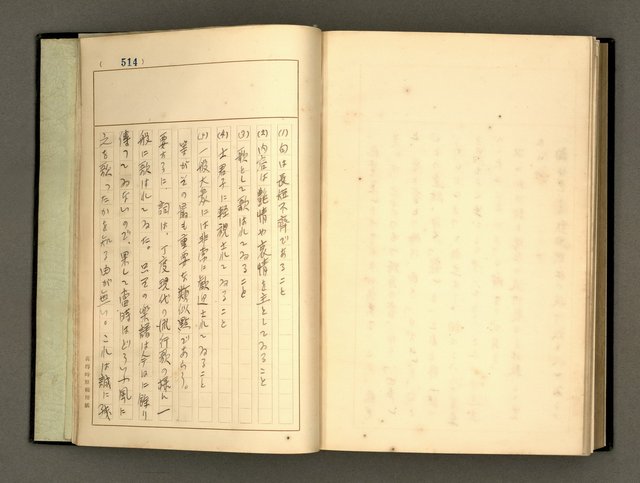 (514)
(1) 句は長短不齊であること
(2) 内容は艶情や哀情を主としてゐること
(3) 歌として歌はれてゐること
(4) 士君子に軽視されてゐること
(5) 一般大衆には非常に歓迎されてゐること
等がその最も重要な類似點であらう。
要するに、詞は、丁度現代の流行歌の様に一
般に歌はれてゐた。只その樂譜は今日に餘り
傳つてゐないので、果して當時はどういふ風に
之を歌つたかを知る由が無い。これは誠に残
原稿用紙